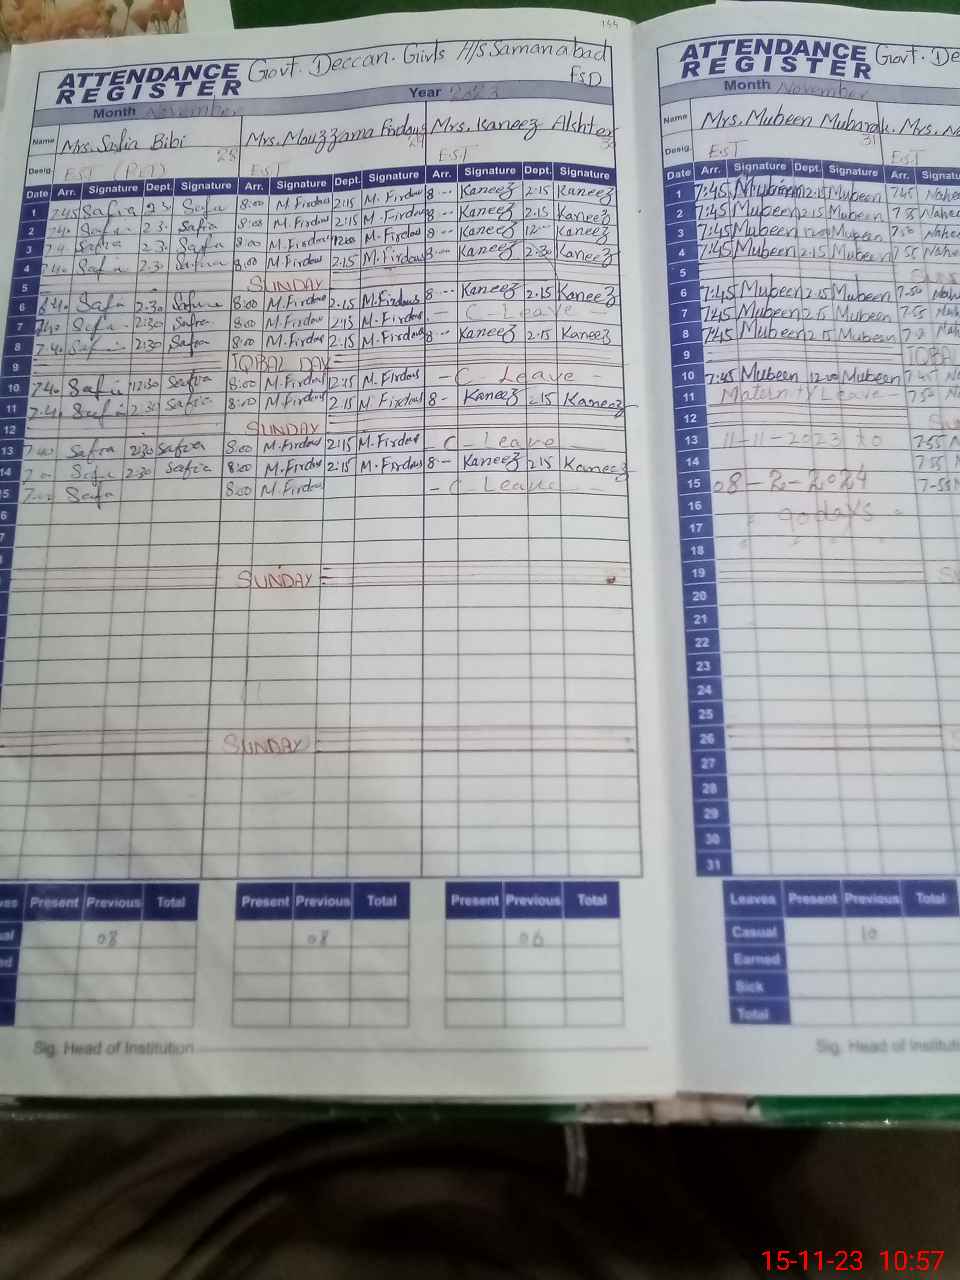 144
ATTENDANCE REGISTER Govt. Deccan. Girls H/s. Samanabad FSD
Month November Year 2023
Name Mrs. Safia Bibi Mrs. Mouzzama Firdous Mrs. Kaneez Akhter
28 29 30
Desig. EST (PET) EST EST
Date Arr. Signature Dept. Signature Arr. Signature Dept. Signature Arr. Signature Dept. Signature
1 7.45 Safia Safia 8:00 M.Firdous 2:15 M.Firdous 8-- Kaneez 2.15 Kaneez
2 7.40 Safia 2.3. Safia 8:00 M.Firdous 2:15 M.Firdous 8-- Kaneez 2.15 Kaneez
3 7.4 Safia 2.3. Safia 8:00 M.Firdous 12:00 M.Firdous 8-- Kaneez 12-- Kaneez
4 7.40 Safia 2.30 Safia 8:00 M.Firdous 2:15 M.Firdous 8-- Kaneez 2.30 Kaneez
5 SUNDAY
6 7.40 Safia 2.30 Safia 8:00 M.Firdous 2:15 M.Firdous 8-- Kaneez 2.15 Kaneez
7 7.40 Safia 2:30 Safia 8:00 M.Firdous 2:15 M.Firdous - C - Leave -
8 7.40 Safia 2:30 Safia 8:00 M.Firdous 2:15 M.Firdous 8-- Kaneez 2.15 Kaneez
9 IQBAL DAY
10 7.40 Safia 12:30 Safia 8:00 M.Firdous 12:15 M.Firdous - C - Leave -
11 7.40 Safia 2.30 Safia 8:00 M.Firdous 2:15 M.Firdous 8- Kaneez 2.15 Kaneez
12 SUNDAY
13 7.40 Safia 2:30 Safia 8:00 M.Firdous 2:15 M.Firdous - C - Leave -
14 Safia 2:30 Safia 8:00 M.Firdous 2:15 M.Firdous 8-- Kaneez 2.15 Kaneez
15 Safia 8:00 M.Firdous - C - Leave -
6
7
SUNDAY
SUNDAY
Present Previous Total Present Previous Total Present Previous Total
08 08 06
Sig. Head of Institution
ATTENDANCE REGISTER Govt. De
Month November
Name Mrs. Mubeen Mubarak. Mrs.
31
Desig. EST EST
Date Arr. Signature Dept. Signature Arr.
1 7:45 Mubeen 2:15 Mubeen 7.45
2 7:45 Mubeen 2:15 Mubeen
3 7:45 Mubeen 12:00 Mubeen 7.50
4 7:45 Mubeen 2:15 Mubeen 7.55
5
6 7:45 Mubeen 2:15 Mubeen 7.50
7 7:45 Mubeen 2:15 Mubeen 7.55
8 7:45 Mubeen 2:15 Mubeen
9 IQBAL
10 7:45 Mubeen 12:00 Mubeen 7.45
11 Maternity Leave - 7.50
12
13 11-11-2023 to 7.55
14 7.55
15 08-2-2024 7-55
16 90 days
17
18
19
20
21
22
23
24
25
26
27
28
29
30
31
Leaves Present Previous Total
Casual 10
Earned
Sick
Total
Sig. Head of Instituti
15-11-23 10:57